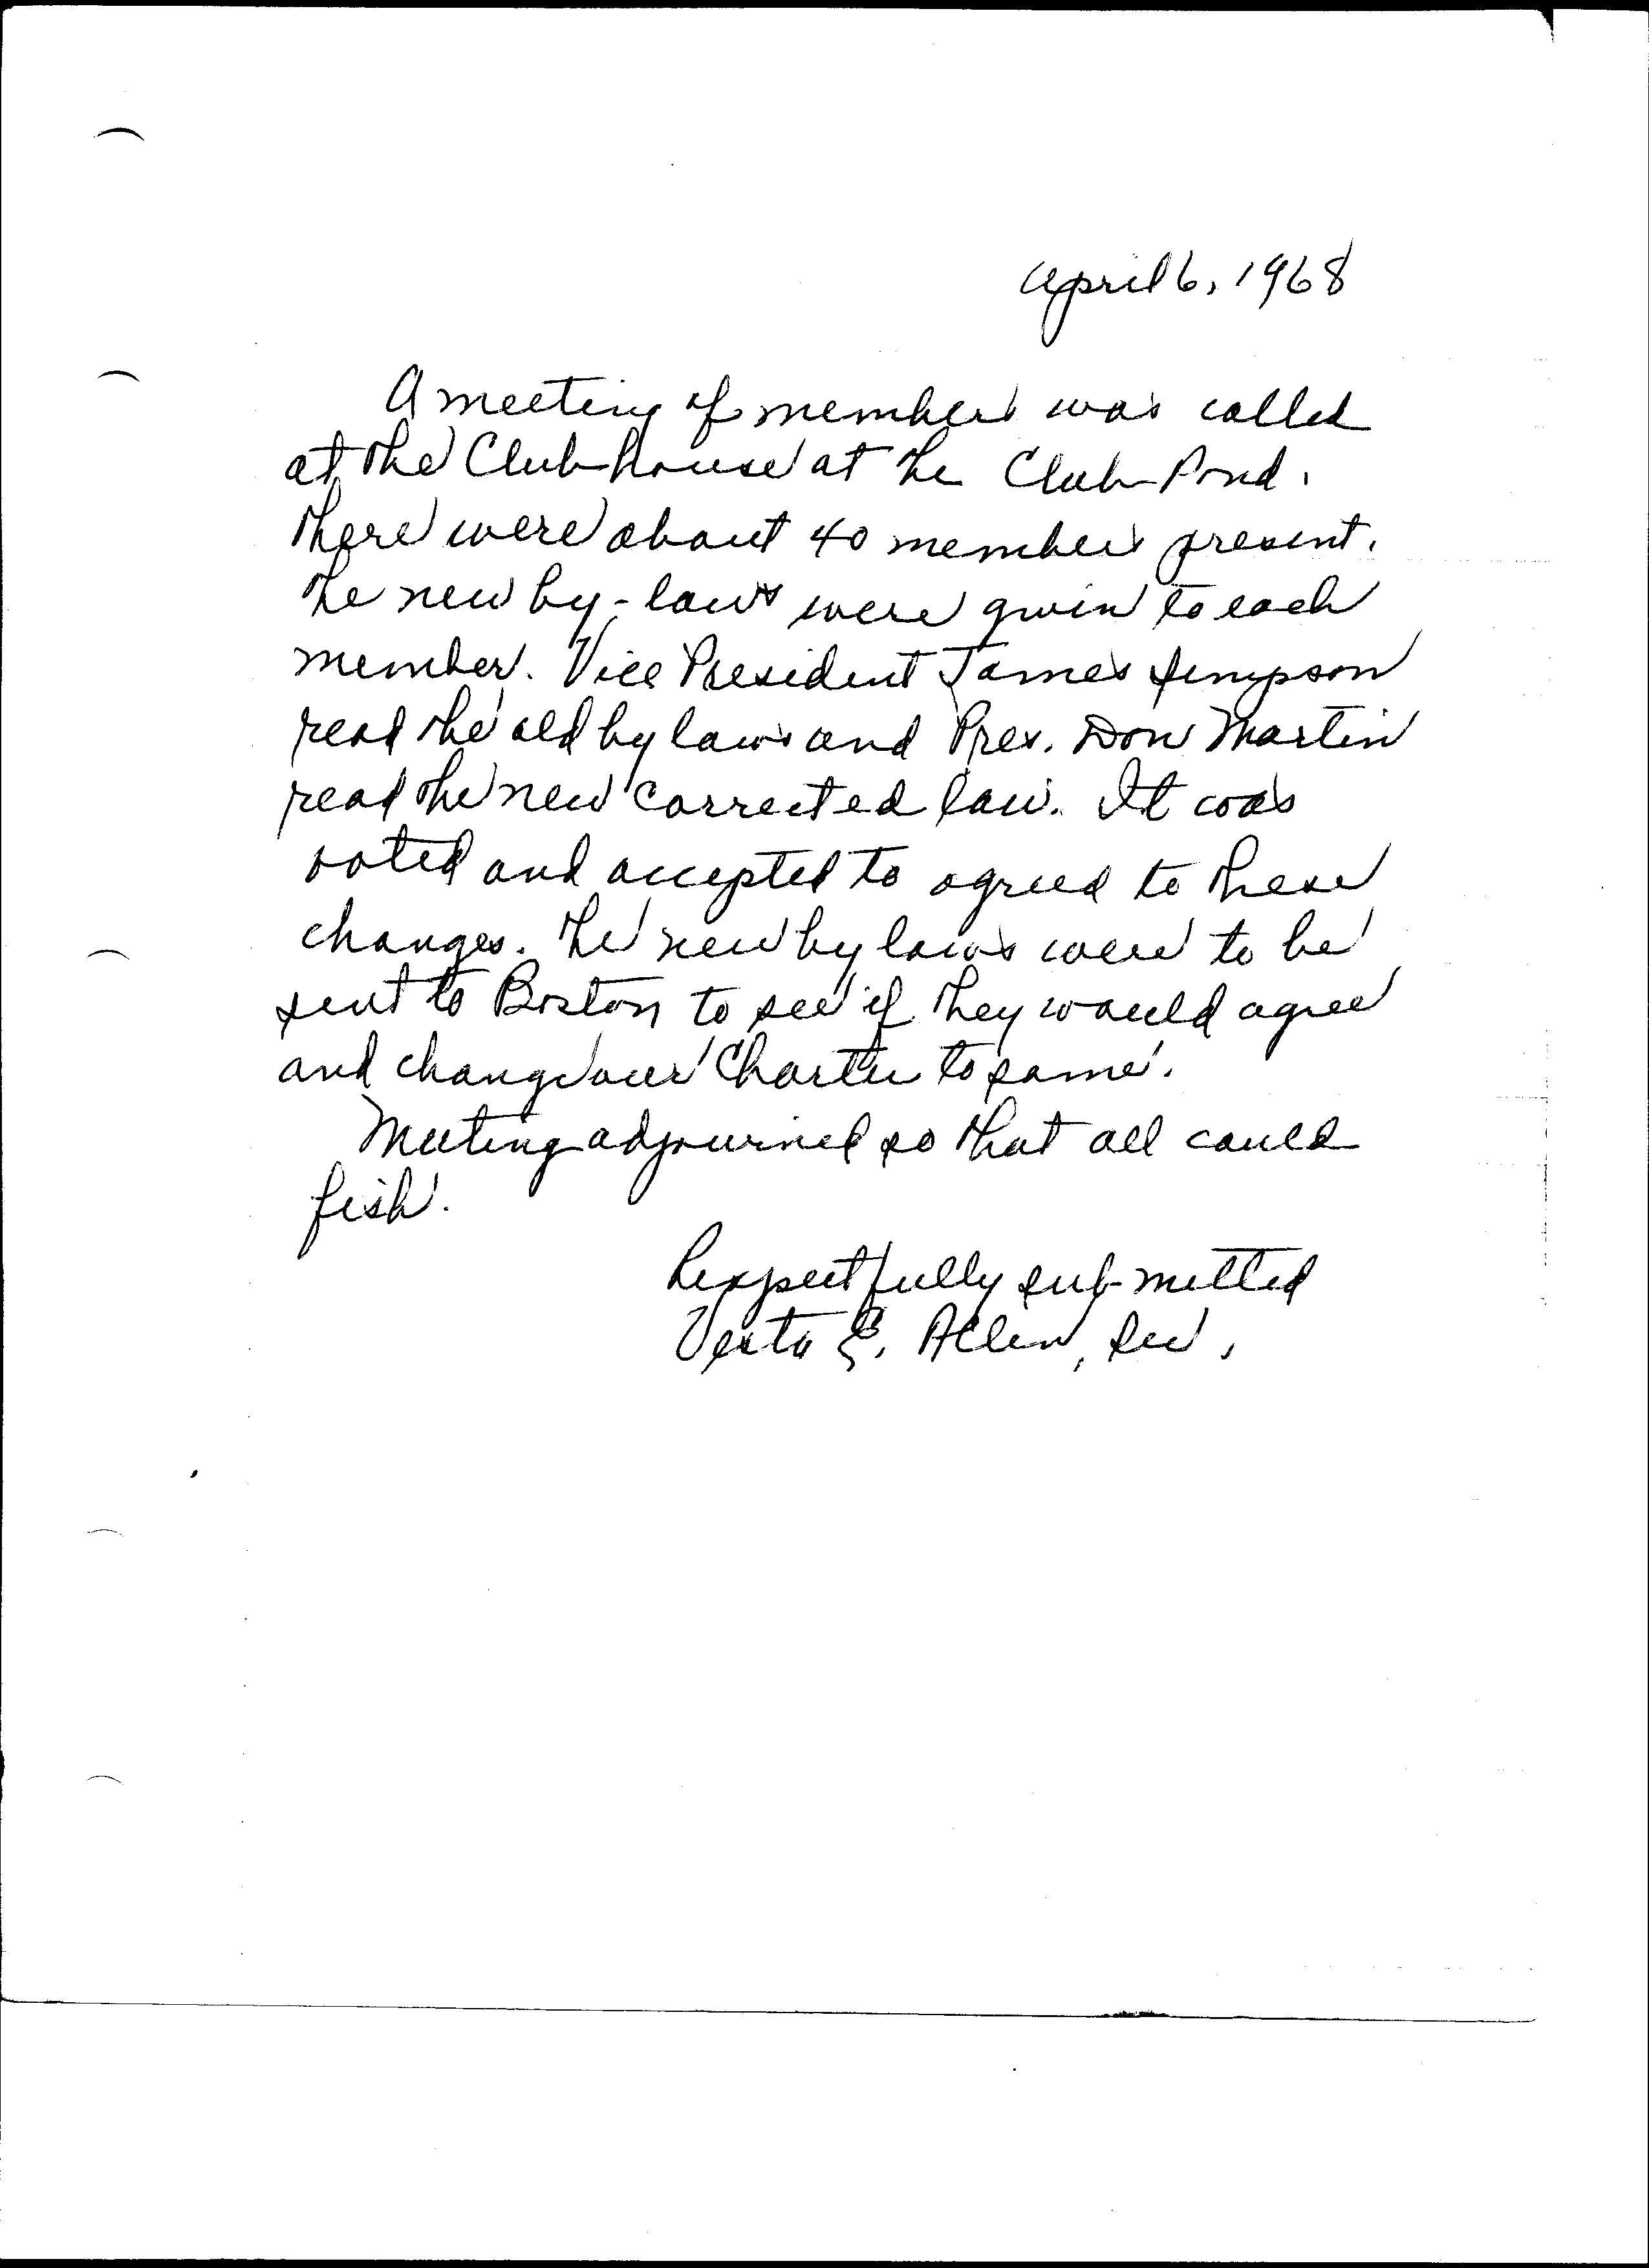 April 6, 1968
A meeting of members was called
at the Club house at the Club Pond.
There were about 40 members present.
The new by-laws were given to each
member. Vice President James Simpson
read the old by laws and Pres. Don Martin
read the new corrected law. It was
voted and accepted to agreed to these
changes. The new by laws were to be
sent to Boston to see if they would agree
and change our Charter to same.
Meeting adjourned so that all could
fish.
Respectfully sub-mitted
Vesta E. Allen, Sec.